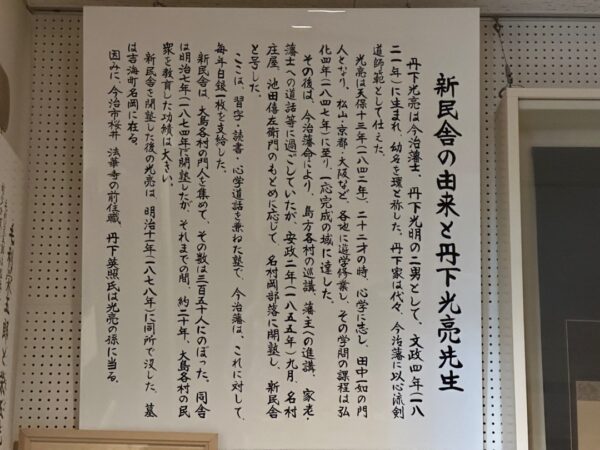 新民舎の由来と丹下光亮先生
丹下光亮は今治藩士、丹下光明の二男として、文政四年(一八
二一年)に生まれ、幼名を環と称した。丹下家は代々、今治藩に以心流剣
道師範として仕えた。
光亮は天保十三年(一八四二年)、二十二才の時、心学に志し、田中一如の門
人となり、松山・京都・大阪など、各地に遊学修業し、その学問の課程は弘
化四年(一八四七年)に至り、一応完成の域に達した。
その後は、今治藩命により、島方各村の巡講、藩主への進講、家老・
藩士への道話等に過ごしていたが、安政二年(一八五五年)九月、名村
庄屋、池田僖左衛門のもとめに応じて、名村岡部落に開塾し、新民舎
と号した。
ここは、習字・読書・心学道話を兼ねた塾で、今治藩は、これに対して、
毎年白銀一枚を支給した。
新民舎は、大島各村の門人を集めて、その数は三百五十人にのぼった。同舎
は明治七年(一八七四年)閉塾したが、それまでの間、約二十年、大島各村の民
衆を教育した功績は大きい。
新民舎を閉塾した後の光亮は、明治十一年(一八七八年)に同所で没した。墓
は吉海町名岡に在る。
因みに、今治市桜井 法華寺の前住職、丹下英照氏は光亮の孫に当る。